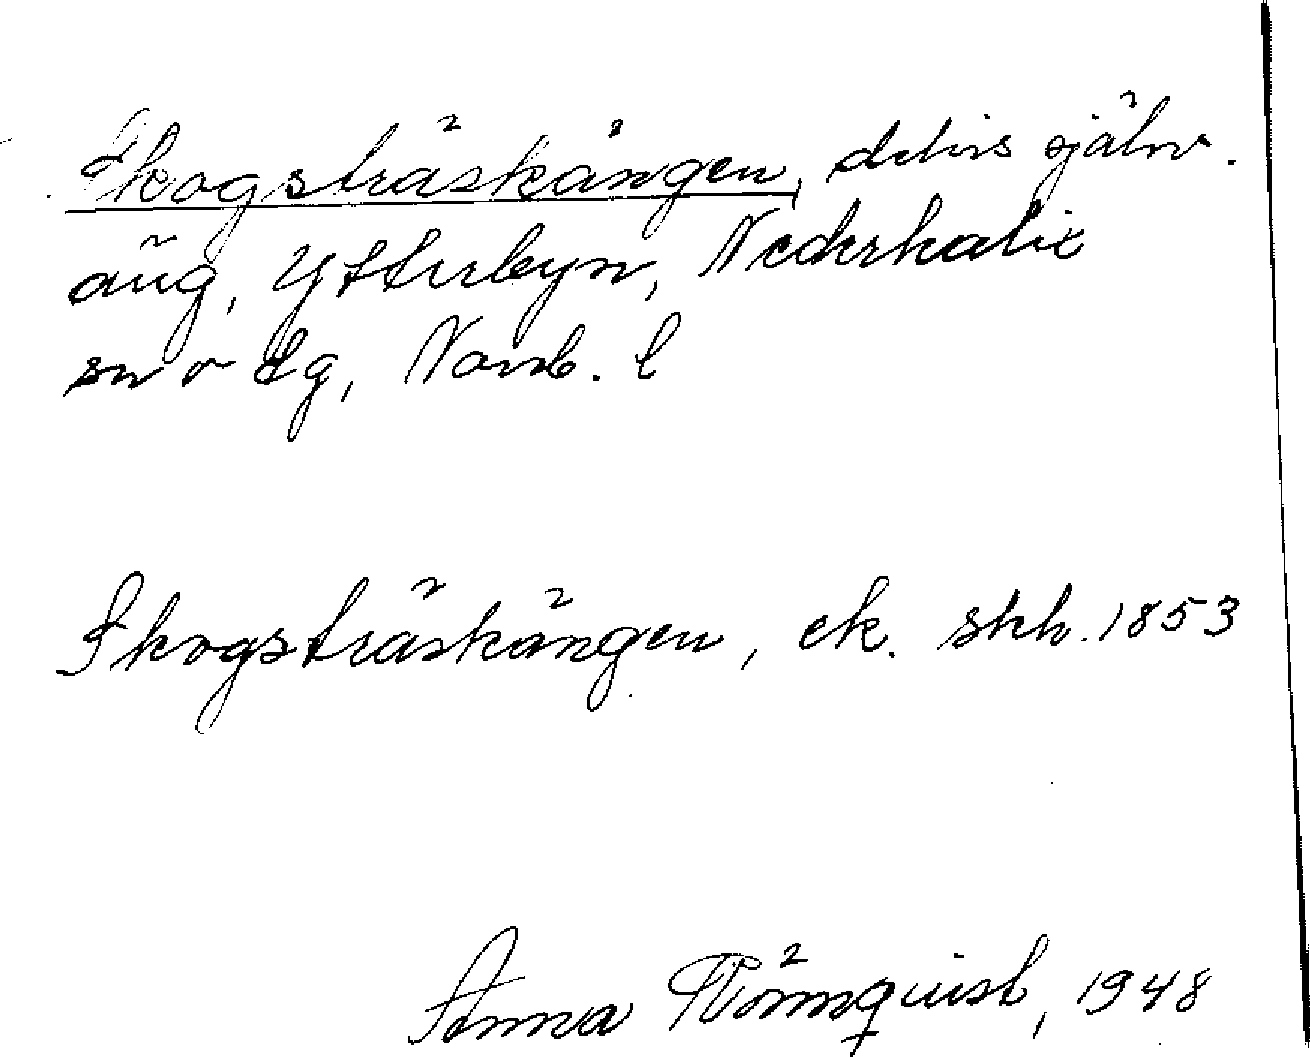 Skogsträskängen, delvis själv.
äng, Ytterbyn, Nederkalix
sn o tg, Norrb. l
Skogsträskängen, ek. skk. 1853
Anna Törnquist, 1948